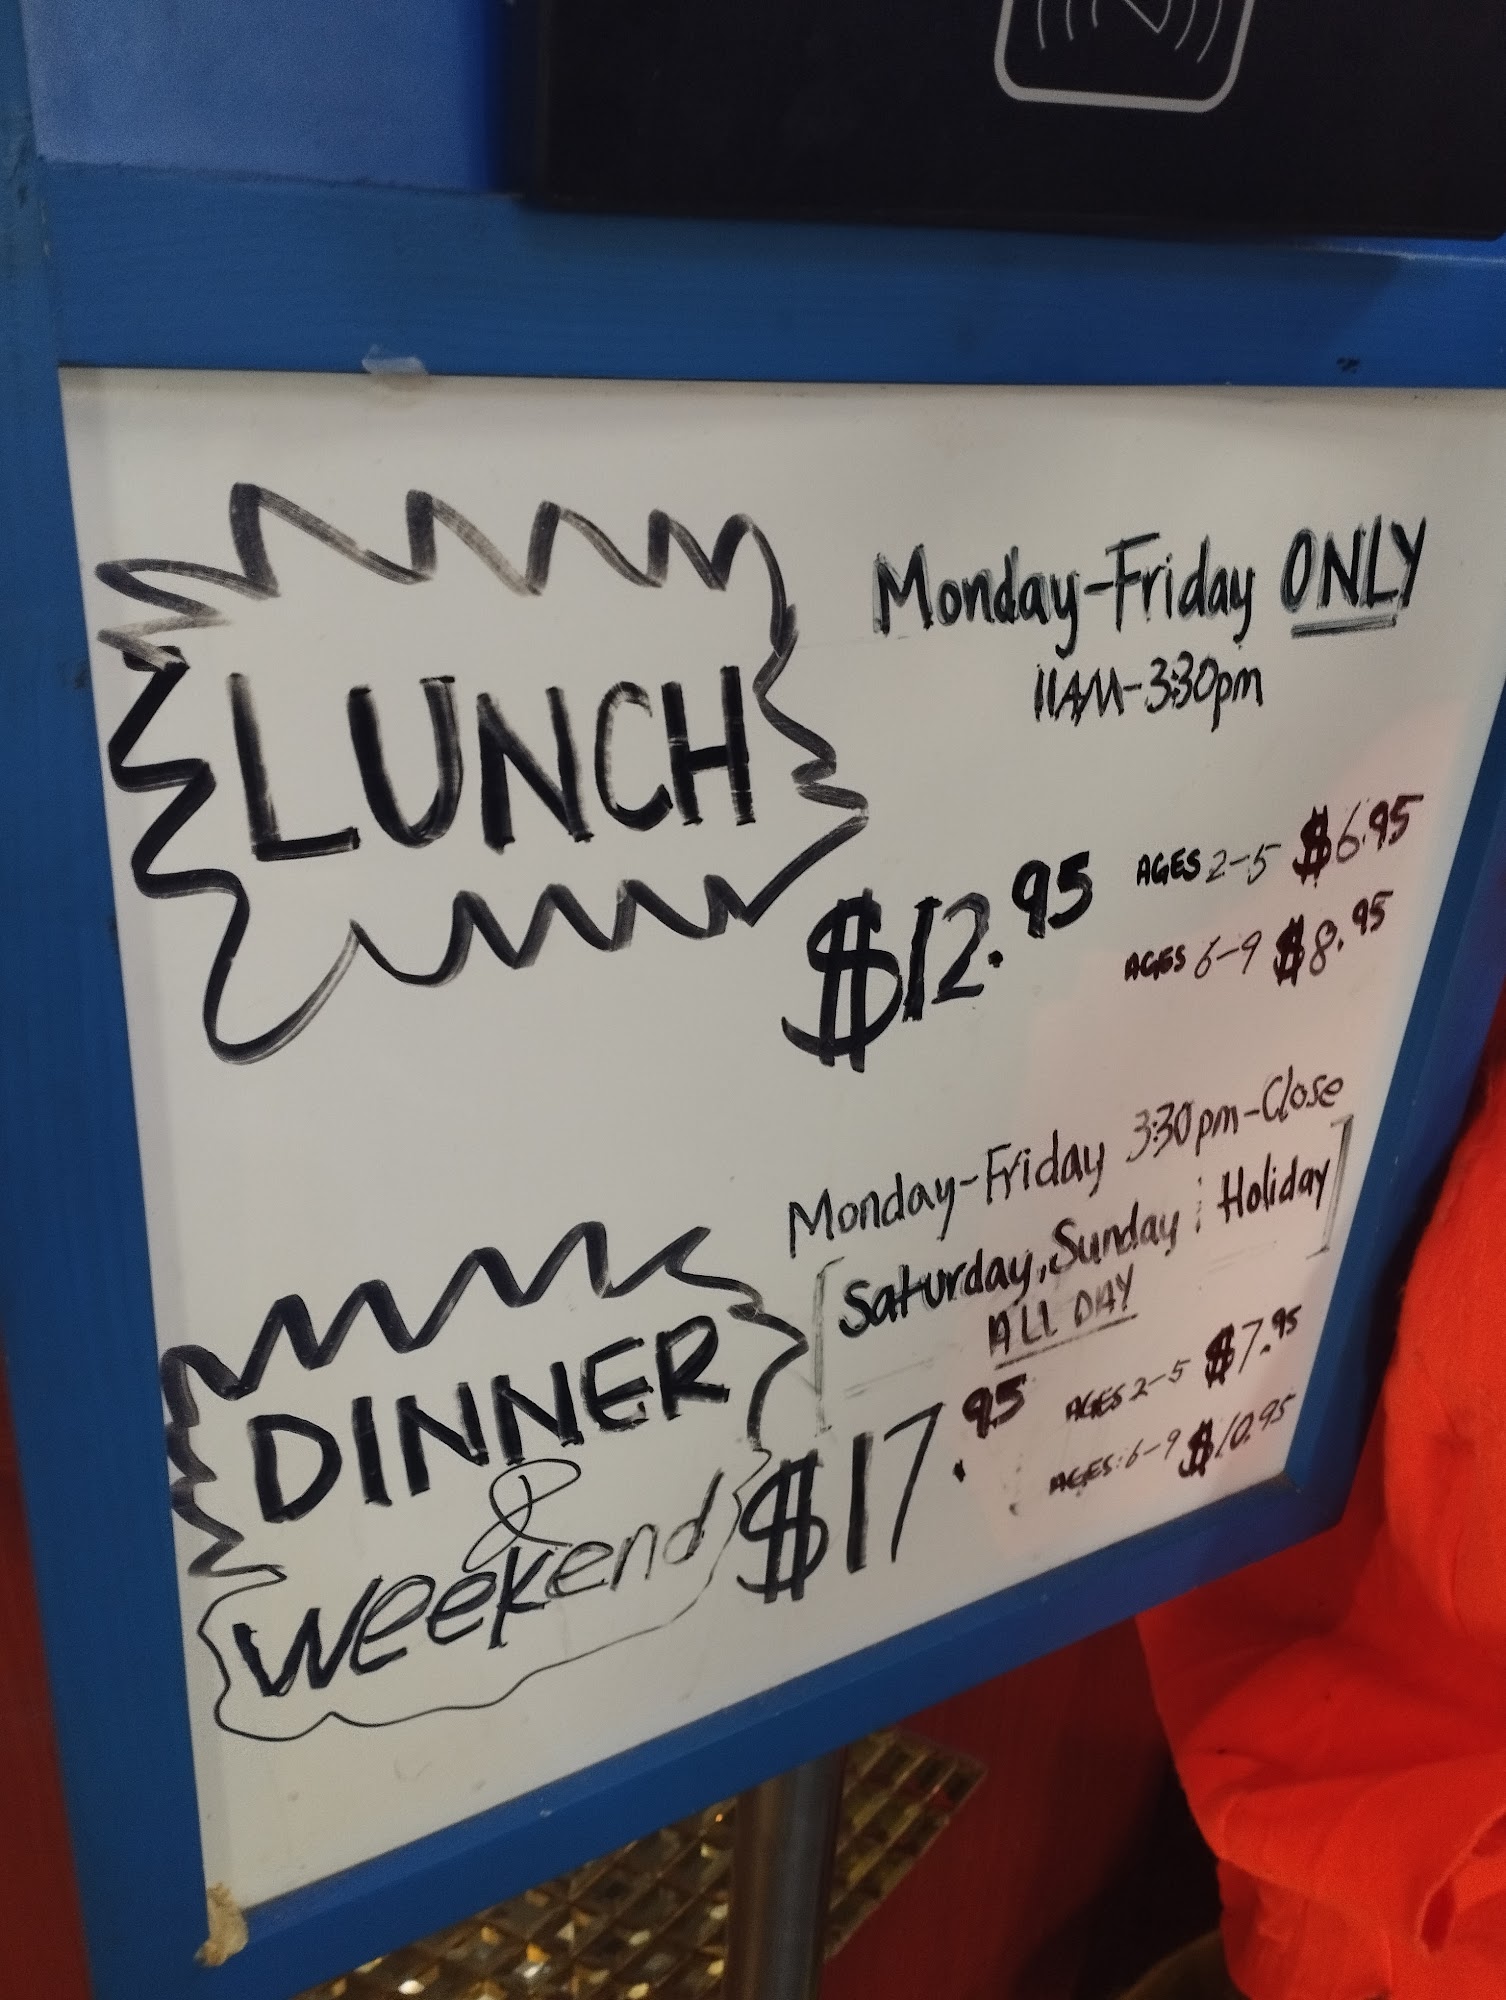 LUNCH
Monday-Friday ONLY
11AM-3:30pm
$12.95
AGES 2-5 $6.95
AGES 6-9 $8.95
DINNER
&
weekend
Monday-Friday 3:30pm-Close
[Saturday, Sunday & Holiday]
ALL DAY
$17.95
AGES 2-5 $7.95
AGES: 6-9 $10.95